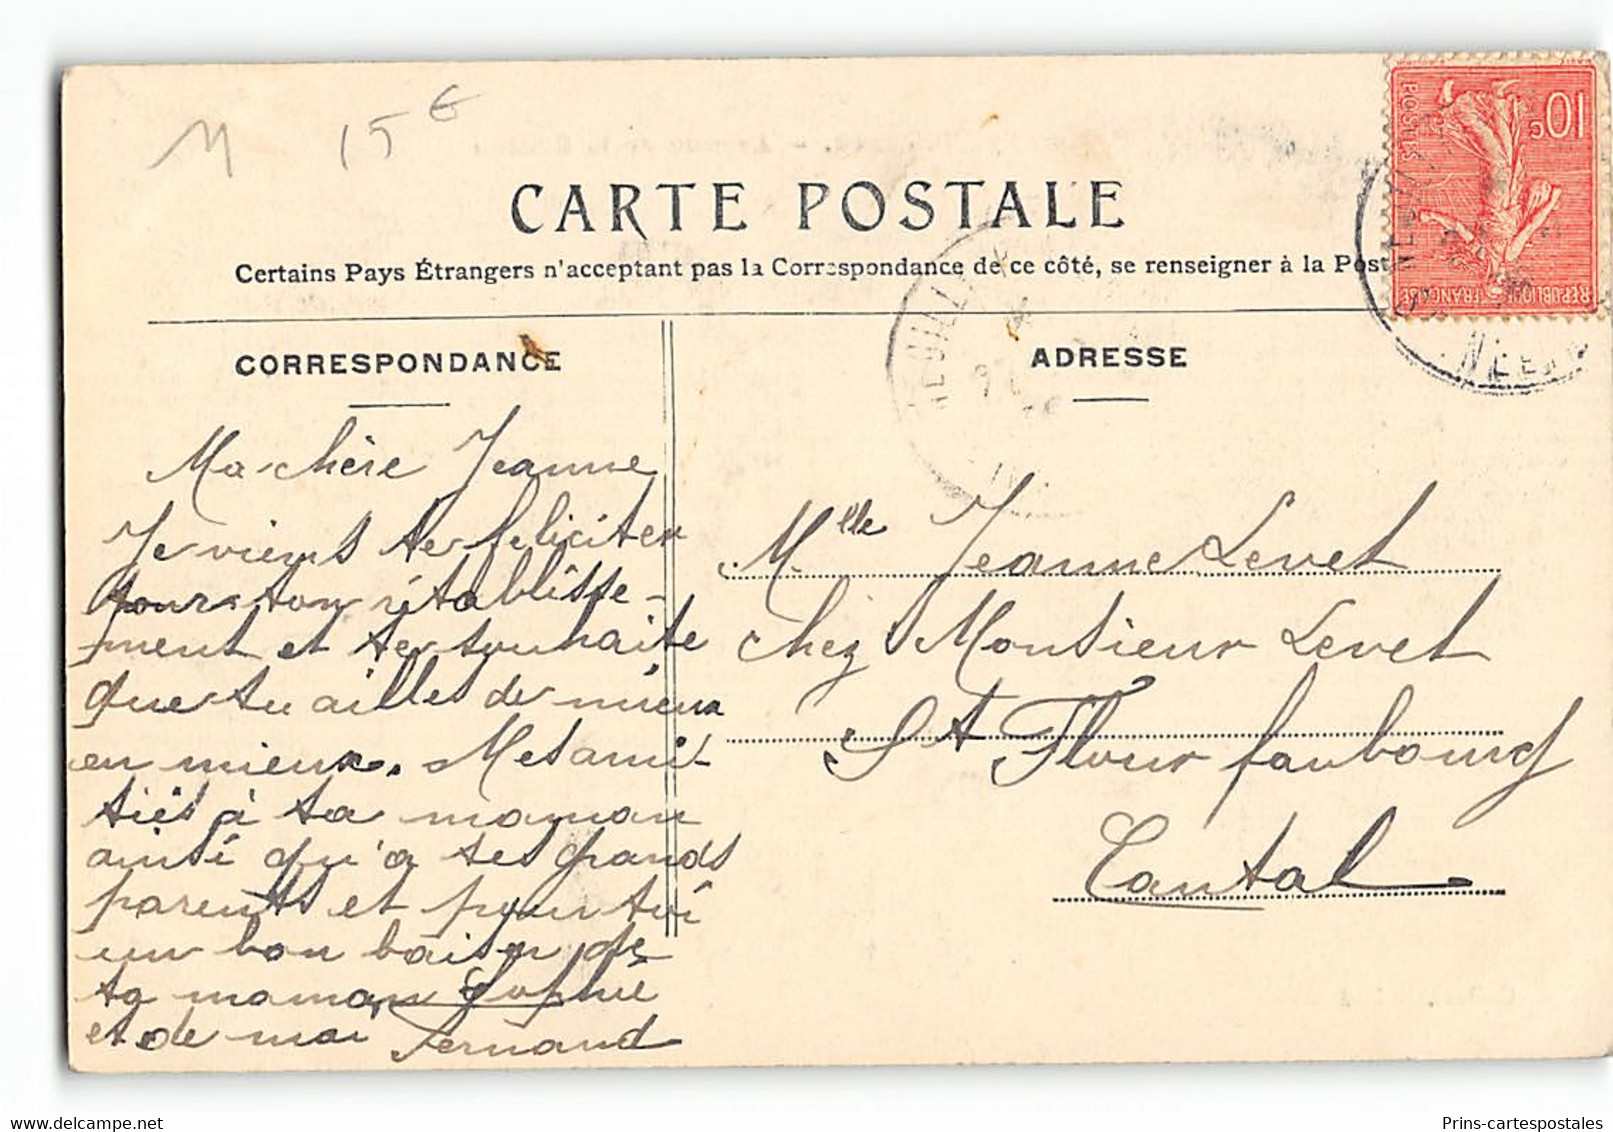 M 15€
CARTE POSTALE
Certains Pays Étrangers n'acceptant pas la Correspondance de ce côté, se renseigner à la Post
CORRESPONDANCE
Ma chère Jeanne
Je viens te feliciter
pour ton rétablisse-
ment et te souhaite
que tu ailles de mieux
en mieux. Mes ami-
tiés à ta maman
ainsi qu'a tes grands
parents et pour toi
un bon baiser de
ta maman Sophie
et de moi Fernand
ADRESSE
Mlle Jeanne Levet
Chez Monsieur Levet
St Flour faubourg
Cantal
10c
POSTES
REPUBLIQUE FRANCAISE
Prins-cartespostales